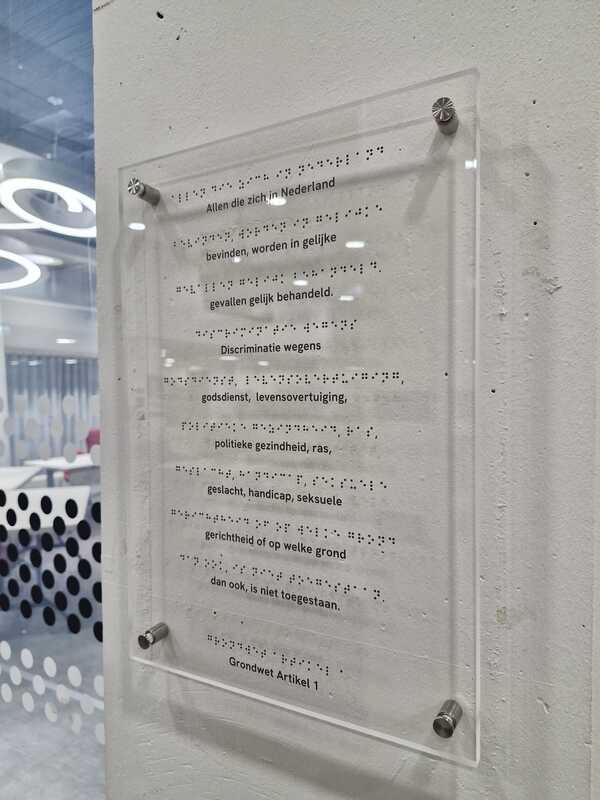 Allen die zich in Nederland
bevinden, worden in gelijke
gevallen gelijk behandeld.
Discriminatie wegens
godsdienst, levensovertuiging,
politieke gezindheid, ras,
geslacht, handicap, seksuele
gerichtheid of op welke grond
dan ook, is niet toegestaan.
Grondwet Artikel 1